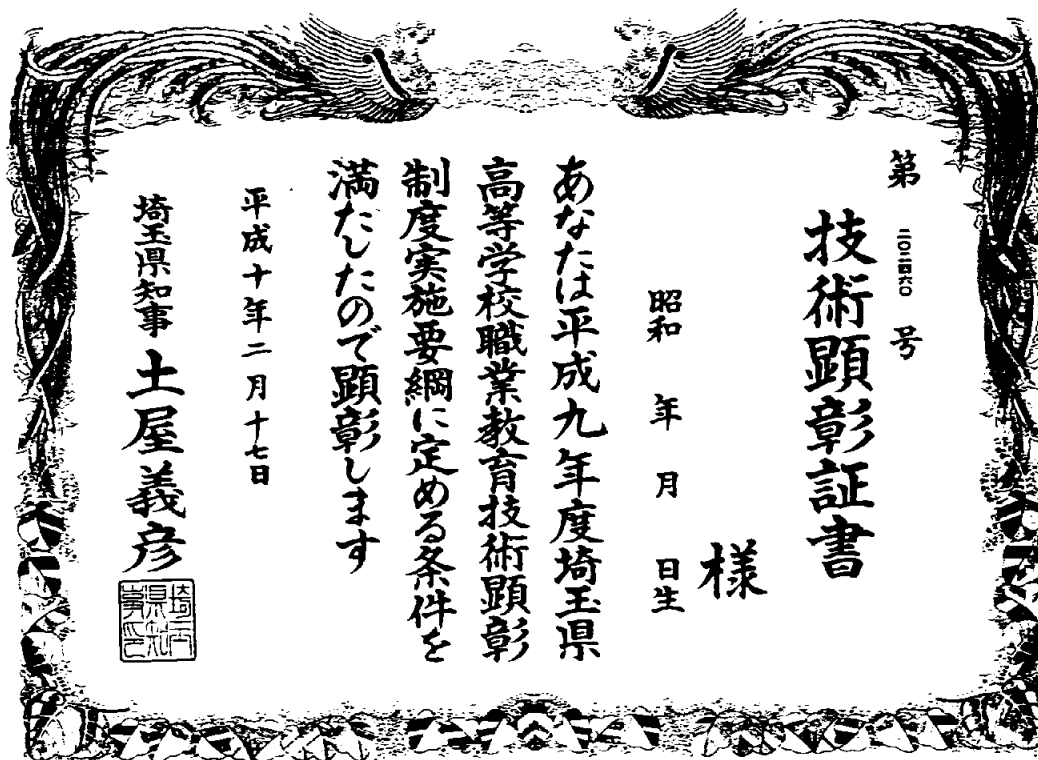 第 二〇二四六〇 号
技術顕彰証書
様
昭和 年 月 日生
あなたは平成九年度埼玉県
高等学校職業教育技術顕彰
制度実施要綱に定める条件を
満たしたので顕彰します
平成十年二月十七日
埼玉県知事 土屋義彦